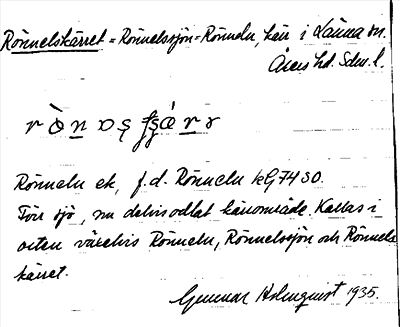 Rönnelskärret = Rönnelssjön = Rönneln, kärr i Länna sn.
Åkers hd. Sdm. l.
Rönneln ek, f.d. Rönneln kG 7430.
Förr sjö, nu delvis odlat kärrområde. Kallas i
orten växelvis Rönneln, Rönnelssjön och Rönnels
kärret.
Gunnar Holmquist 1935.